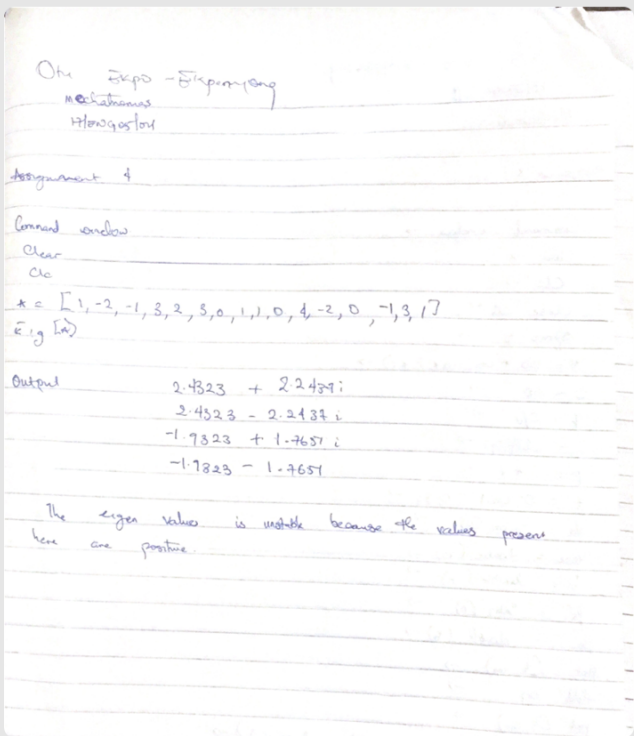 Otu Ekpo - Ekpenyong
mechatronics
Assignment 4
Command window
Clear
Clc
A = [1, -2, -1, 3, 2, 3, 0, 1, 1, 0, 4, -2, 0, -1, 3, 1]
Eig [A]
Output 2.4323 + 2.2437i
2.4323 - 2.2437i
-1.9323 + 1.7651i
-1.9323 - 1.7651
The eigen values is unstable because the values present
here are positive.